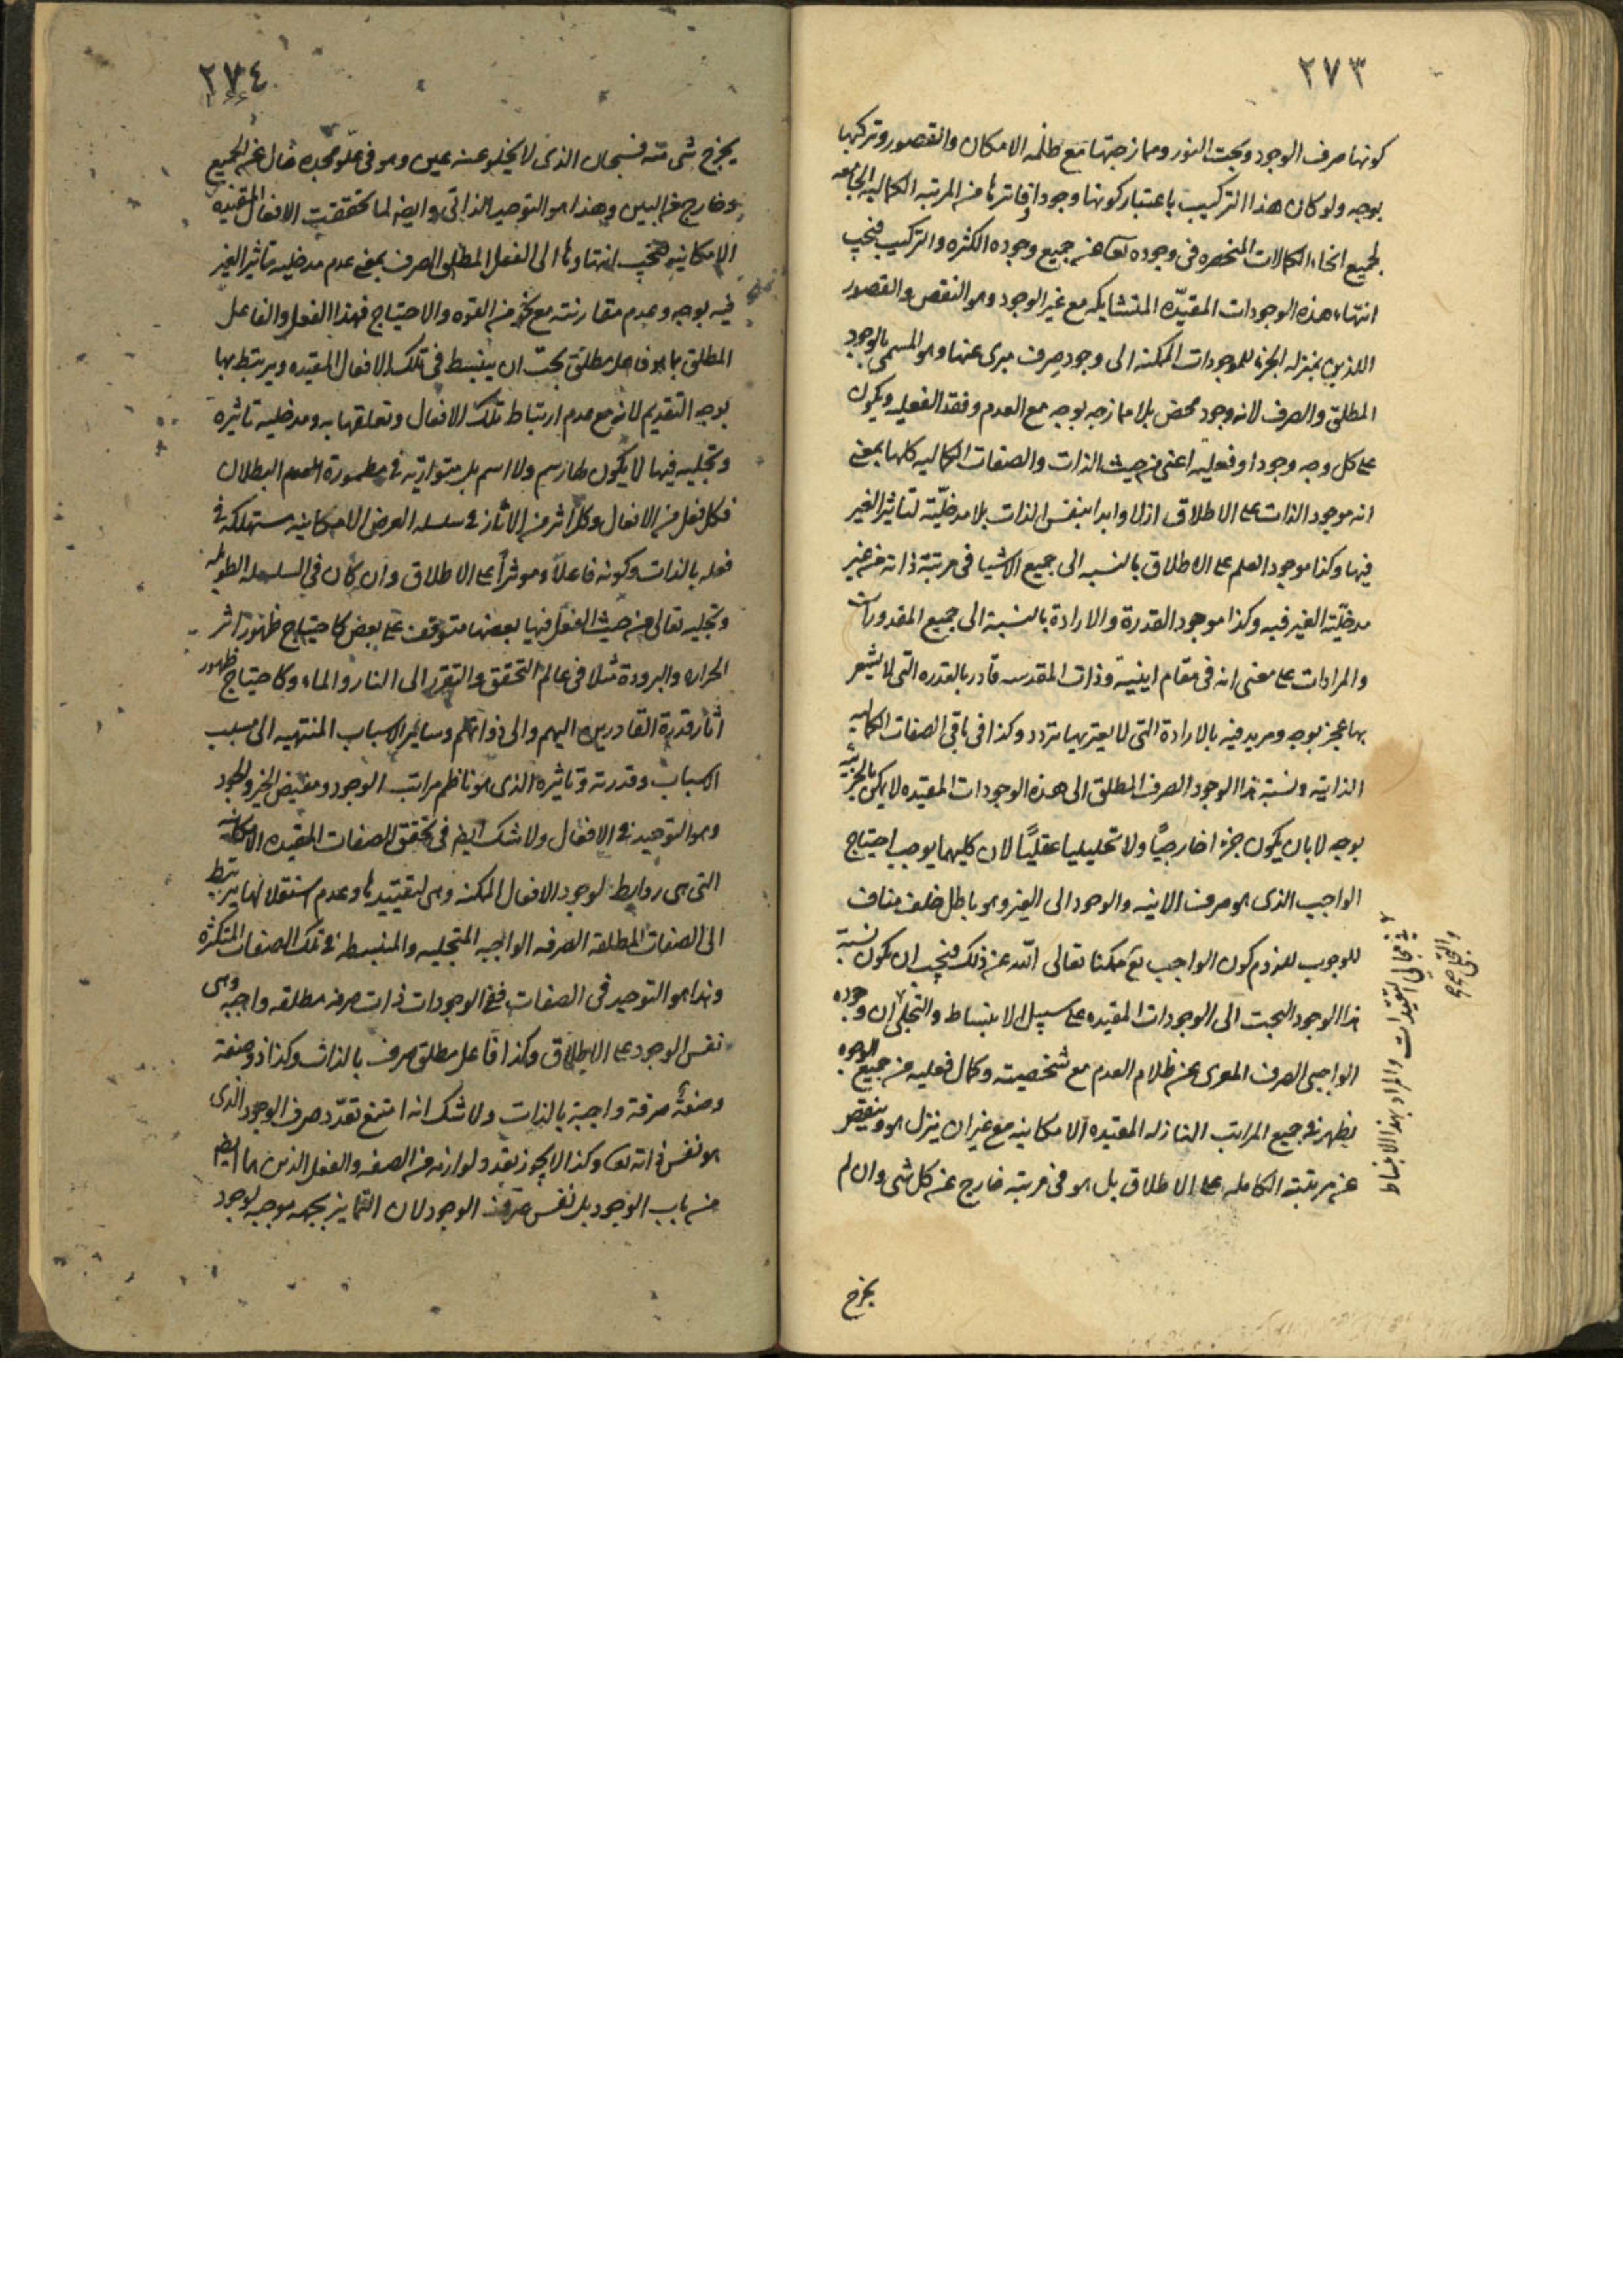 ٢٧٣
كونها صرف الوجود وبحت النور وممازجتها مع ظلمه الامكان والقصور وتركبها
بوجه ولو كان هذا التركيب باعتبار كونها وجودا فاترها من المرتبه الكماليه الجامعه
لجميع انحاء الكمالات المنحصره فى وجوده تعا من جميع وجوده الكثره والتركيب فيجب
انتهاء هذه الوجودات المقيّده المتشابكه مع غير الوجود وهو النقص والقصور
اللذين بمنزله الجزء للموجودات الممكنه الى وجود صرف مبرى عنها وهو المسمى بالوجود
المطلق والصرف لانه وجود محض بلا ممازجه بوجه مع العدم وفقد الفعليه ويكون
على كل وجه وجودا وفعليه اعنى من حيث الذات والصفات الكماليه كلها بمعنى
انه موجود الذات على الاطلاق ازلا وابدا بنفس الذات بلا مدخليّته لتاثير الغير
فيها وكذا موجود العلم على الاطلاق بالنسبه الى جميع الاشيا فى مرتبة ذاته من غير
مدخليّته الغير فيه وكذا موجود القدرة والارادة بالنسبة الى جميع المقدورات
والمرادات على معنى انه فى مقام اينيته وذات المقدسه قادر بالقدره التى لا يشعر
بها عجز بوجه ومريد فيه بالارادة التى لا يعتريها تردد وكذا فى باقى الصفات الكماليه
الذاتيه ونسبته هذا الوجود الصرف المطلق الى هذه الوجودات المقيده لا يكن بالجزئيه
بوجه لا بان يكون جزءا خارجيًا ولا تحليليا عقليًا لان كليهما يوجب احتياج
الواجب الذى هو صرف الانيه والوجود الى الغير وهو باطل خلف مناف
للوجوب للزوم كون الواجب تع ممكنا تعالى الله عن ذلك فيجب ان يكون نسبة
هذا الوجود البحت الى الوجودات المقيده على سبيل الانبساط والتجلى ان وجوده
الواجبى الصرف المعرى عن ظلام العدم مع شخصيته وكمال فعليه من جميع الوجوه
يظهر فى جميع المراتب النازله المقيده الامكانيه مع غير ان ينزل هو وينقص
عن مرتبته الكامله على الاطلاق بل هو فى مرتبه خارج عن كل شى وان لم
يخرج
فى مجالى التقيدات والمراد بهذا الانبساط
والتجلى
٢٧٤
يخرج شى منه فسبحان الذى لا يخلو عنه عين وهو فى علو مجده خال عن الجميع
وخارج عن البين وهذا هو التوحيد الذاتى وايضا لما تحققت الافعال المقيده
الامكانيه فيجب انتهاوها الى الفعل المطلق الصرف بمعنى عدم مدخليه تاثير الغير
فيه بوجه وعدم مقارنته مع نحو من القوه والاحتياج فهذا الفعل والفاعل
المطلق بما هو فاعل مطلق بحت ان ينبسط فى تلك الافعال المقيده ويرتبط بها
بوجه التقديم لانه مع عدم ارتباط تلك الافعال وتعلقها به ومدخليه تاثيره
وتجليه فيها لا يكون لها رسم ولا اسم بل متواريه فى مطمورة العدم البطلان
فكل فعل من الافعال وكل اثر من الاثار فى سلسله العرض الامكانيه مستهلكه فى
فعله بالذات وكونه فاعلاً وموثراً على الاطلاق وان كان فى السلسله الطوليه
وتجليه تعالى من حيث الفعل فيها بعضها متوقف على بعض كاحتياج ظهور اثر
الحراره والبرودة مثلا فى عالم التحقق والتقرر الى النار والماء وكاحتياج ظهور
اثار قدرة القادرين اليهم والى ذواتهم وساير الاسباب المنتهيه الى مسبب
الاسباب وقدرته وتاثيره الذى هو ناظم مراتب الوجود ومفيض الخير والجود
وهو التوحيد فى الافعال ولا شك ايضا فى تحقق الصفات المقيده الامكانيه
التى هى روابط لوجود الافعال الممكنه وهى لتقييدها وعدم استقلالها يرتبط
الى الصفات المطلقه الصرفه الواجبه المتجليه والمنبسطه فى تلك الصفات المتكثره
وهذا هو التوحيد فى الصفات ففى الوجودات ذات صرفه مطلقه واجبه وهى
نفس الوجود على الاطلاق وكذا فاعل مطلق صرف بالذات وكذا ذو صفة
وصفة صرفة واجبة بالذات ولا شك انه امتنع تعدّد صرف الوجود الذى
هو نفس ذاته تعا وكذا لا يجوز تعدد لوازمه من الصفه والفعل الذين هما ايضا
من باب الوجود بل نفس صرف الوجود لان التمايز بجهه موجبه لوجود